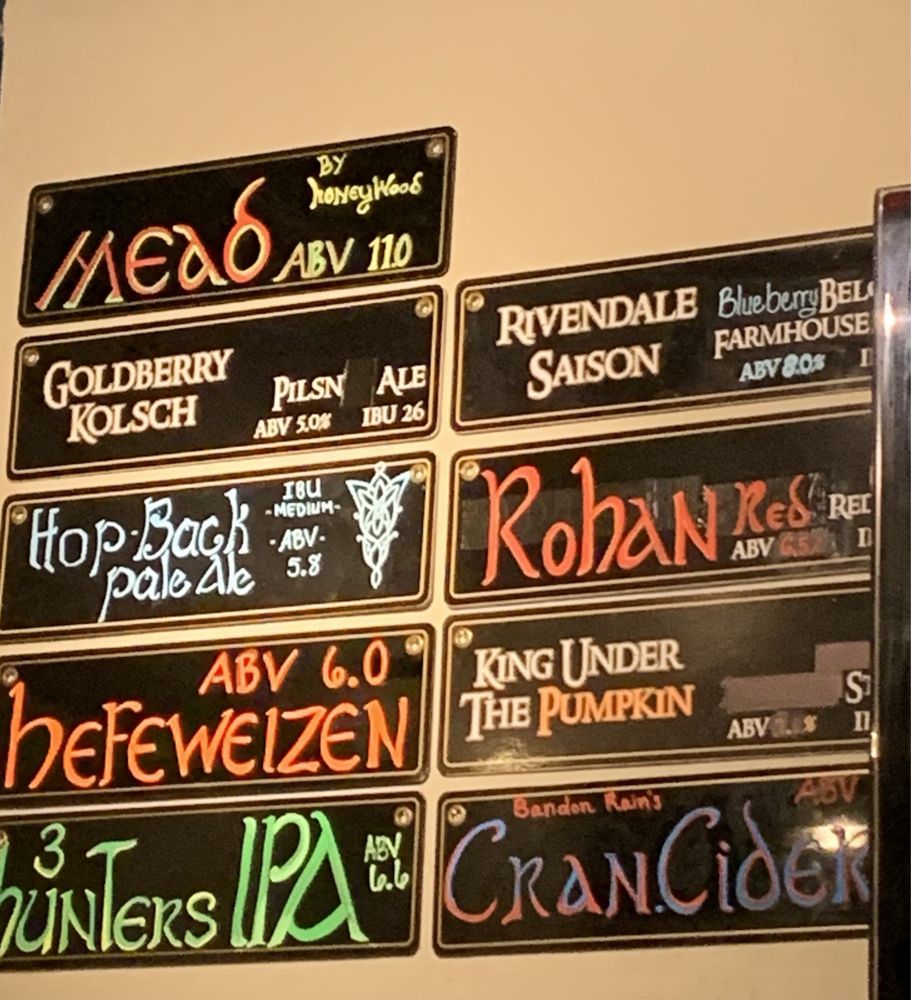 BY
honeyWood
Mead ABV 110
GOLDBERRY
KOLSCH
PILSN ALE
ABV 5.0% IBU 26
Hop-Back
pale Ale
IBU
-MEDIUM-
-ABV-
5.8
ABV 6.0
hEFEWEIZEN
3
hUNTERS IPA
ABV
6.6
RIVENDALE
SAISON
Blueberry
FARMHOUSE
ABV 8.0%
Rohan Red
ABV
KING UNDER
THE PUMPKIN
ABV
Bandon Rain's
ABV
CRAN.CIDER